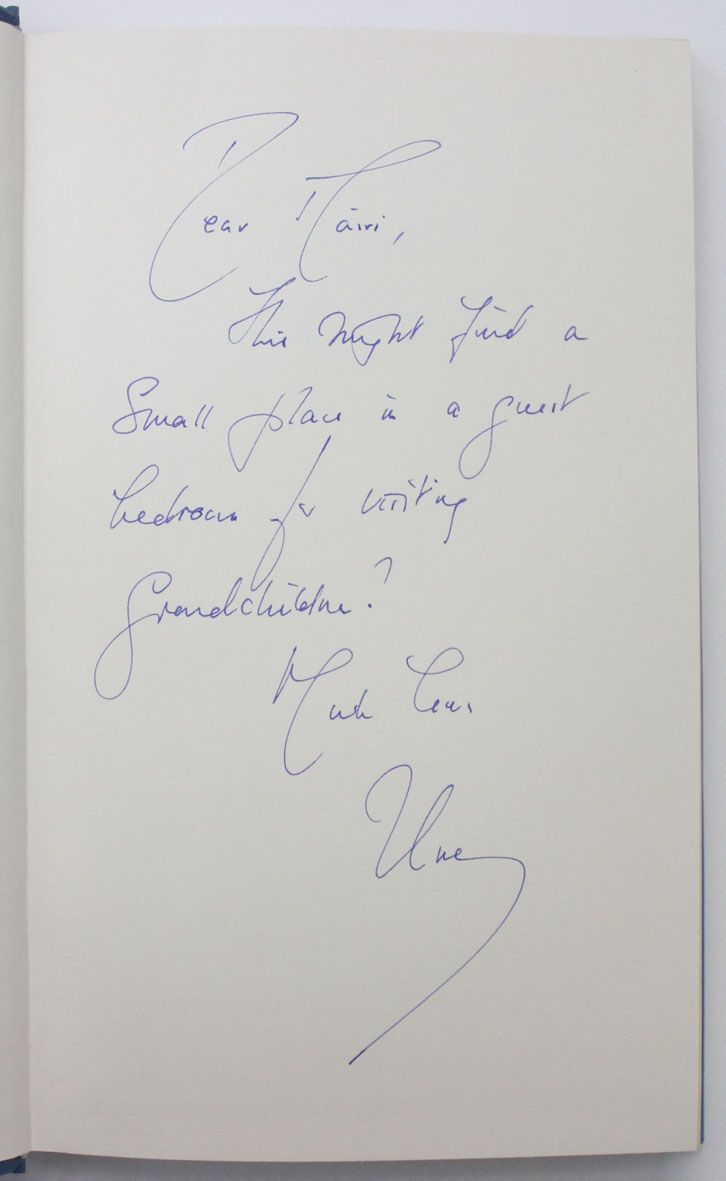 Dear Màiri,
This might find a
Small place in a guest
bedroom for visiting
Grandchildren?
Much love.
Uwe